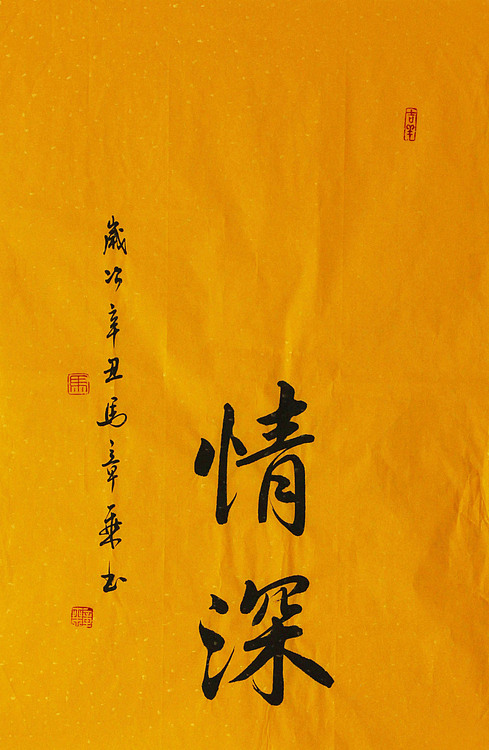 情深
歲次辛丑馬章乗书
馬